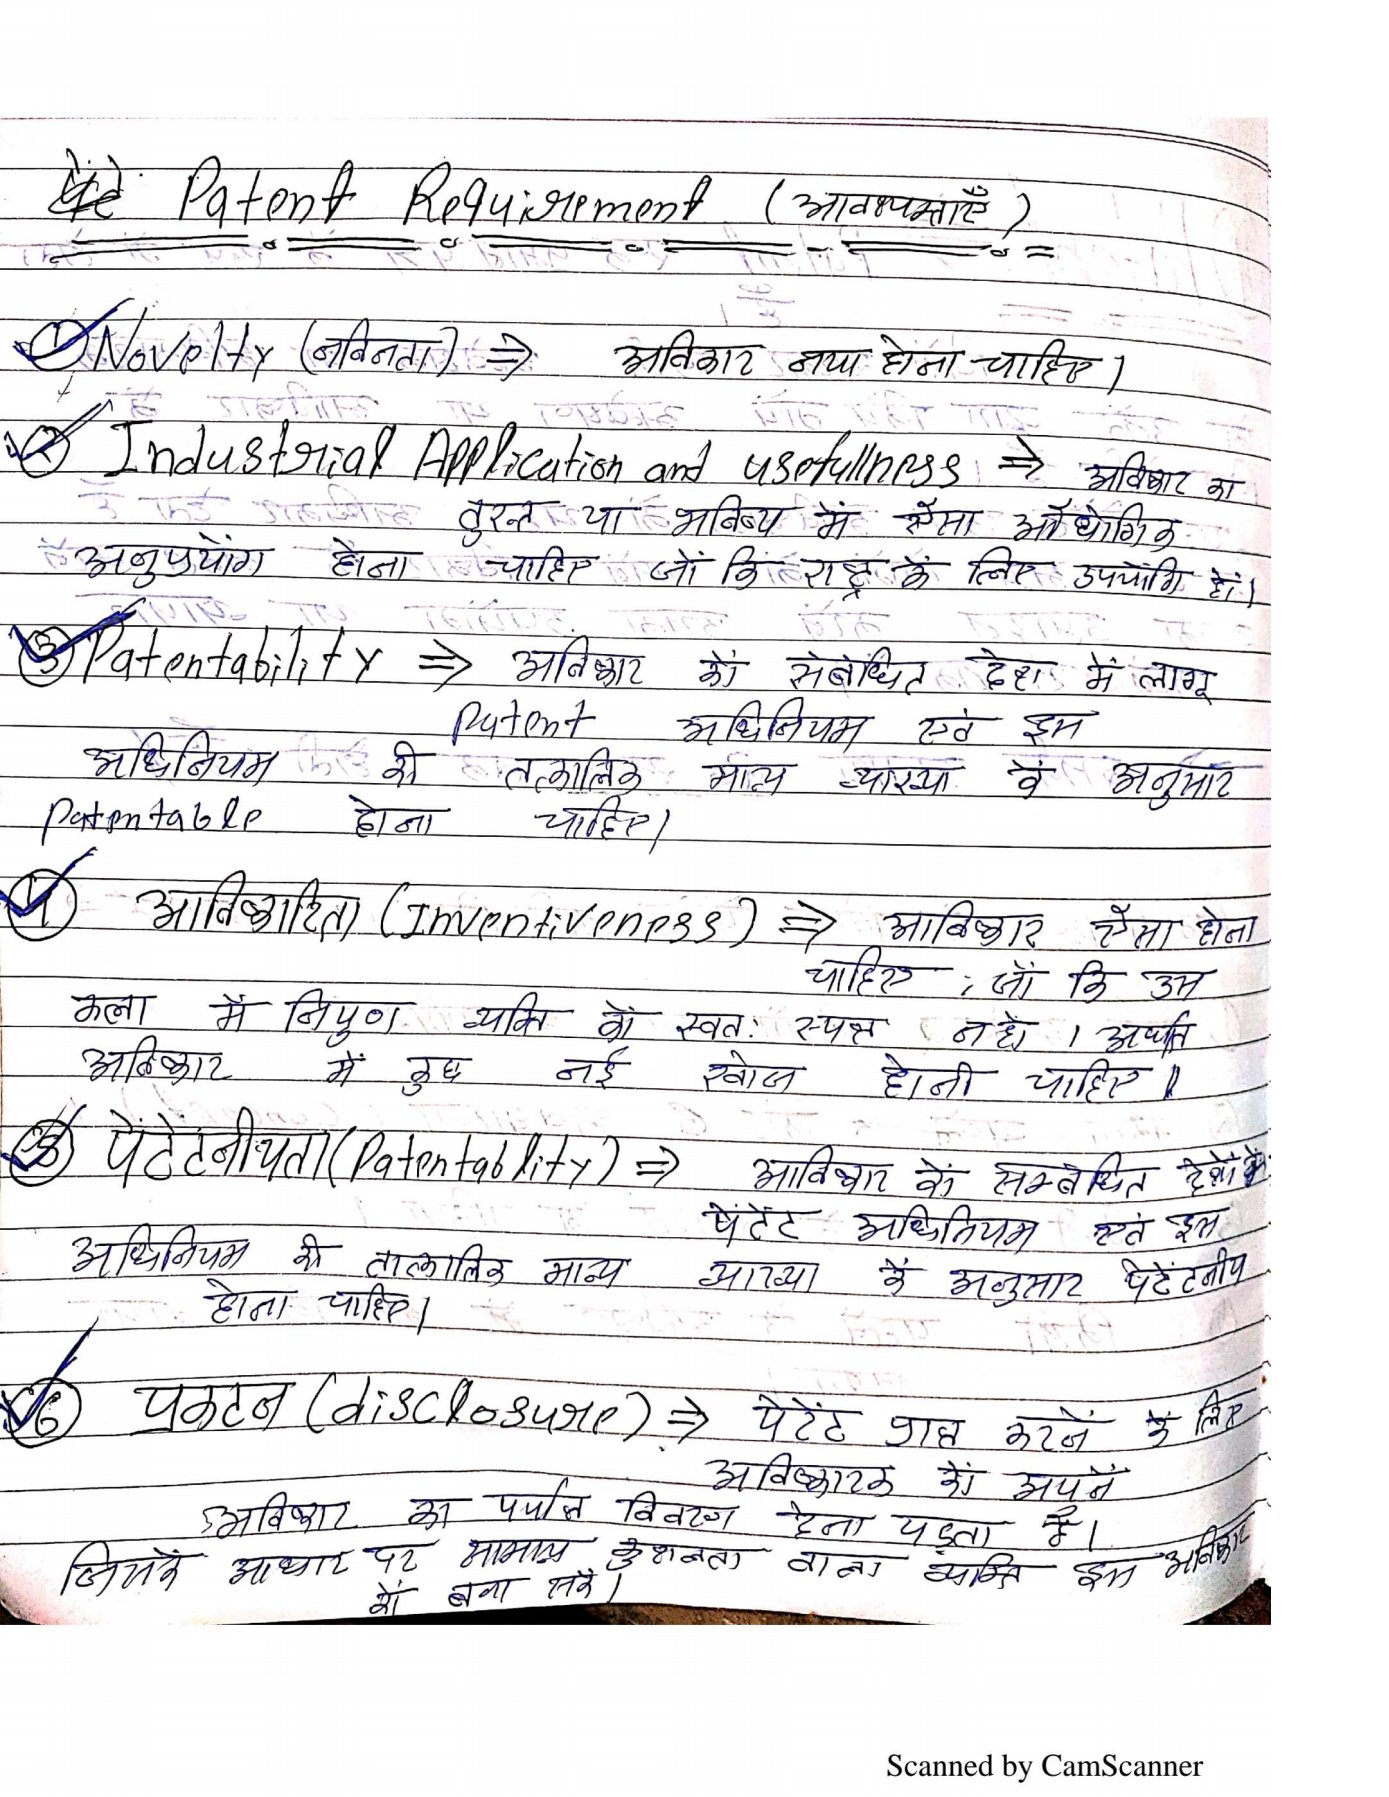 Patent Requirement (आवश्यकताएँ)
① Novelty (नविनता) ⇒ अविष्कार नया होना चाहिए।
② Industrial Application and usefullness ⇒ अविष्कार का
तुरन्त या भविष्य में ऐसा औधोगिक
अनुप्रयोग होना चाहिए जो कि राष्ट्र के लिए उपयोगि हो।
③ Patentability ⇒ अविष्कार को संबंधित देश में लागू
Patent अधिनियम एवं इस
अधिनियम की तत्कालिक मान्य व्याख्या के अनुसार
Patentable होना चाहिए।
④ आविष्कारिता (Inventiveness) ⇒ आविष्कार ऐसा होना
चाहिए, जो कि उस
कला में निपुण व्यक्ति को स्वतः स्पष्ट न हो। अर्थात
अविष्कार में कुछ नई खोज होनी चाहिए।
⑤ पेंटेंटनीयता (Patentablity) ⇒ आविष्कार को सम्बंधित देशों के
पेंटेंट अधिनियम एवं इस
अधिनियम की तात्कालिक मान्य व्याख्या के अनुसार पेटेंटनीय
होना चाहिए।
⑥ प्रकटन (disclosure) ⇒ पेटेंट प्राप्त करने के लिए
अविष्कारक को अपने
अविष्कार का पर्याप्त विवरण देना पड़ता है।
जिसके आधार पर सामान्य कुशलता वाला व्यक्ति इस अविष्कार
को बना सके।
Scanned by CamScanner